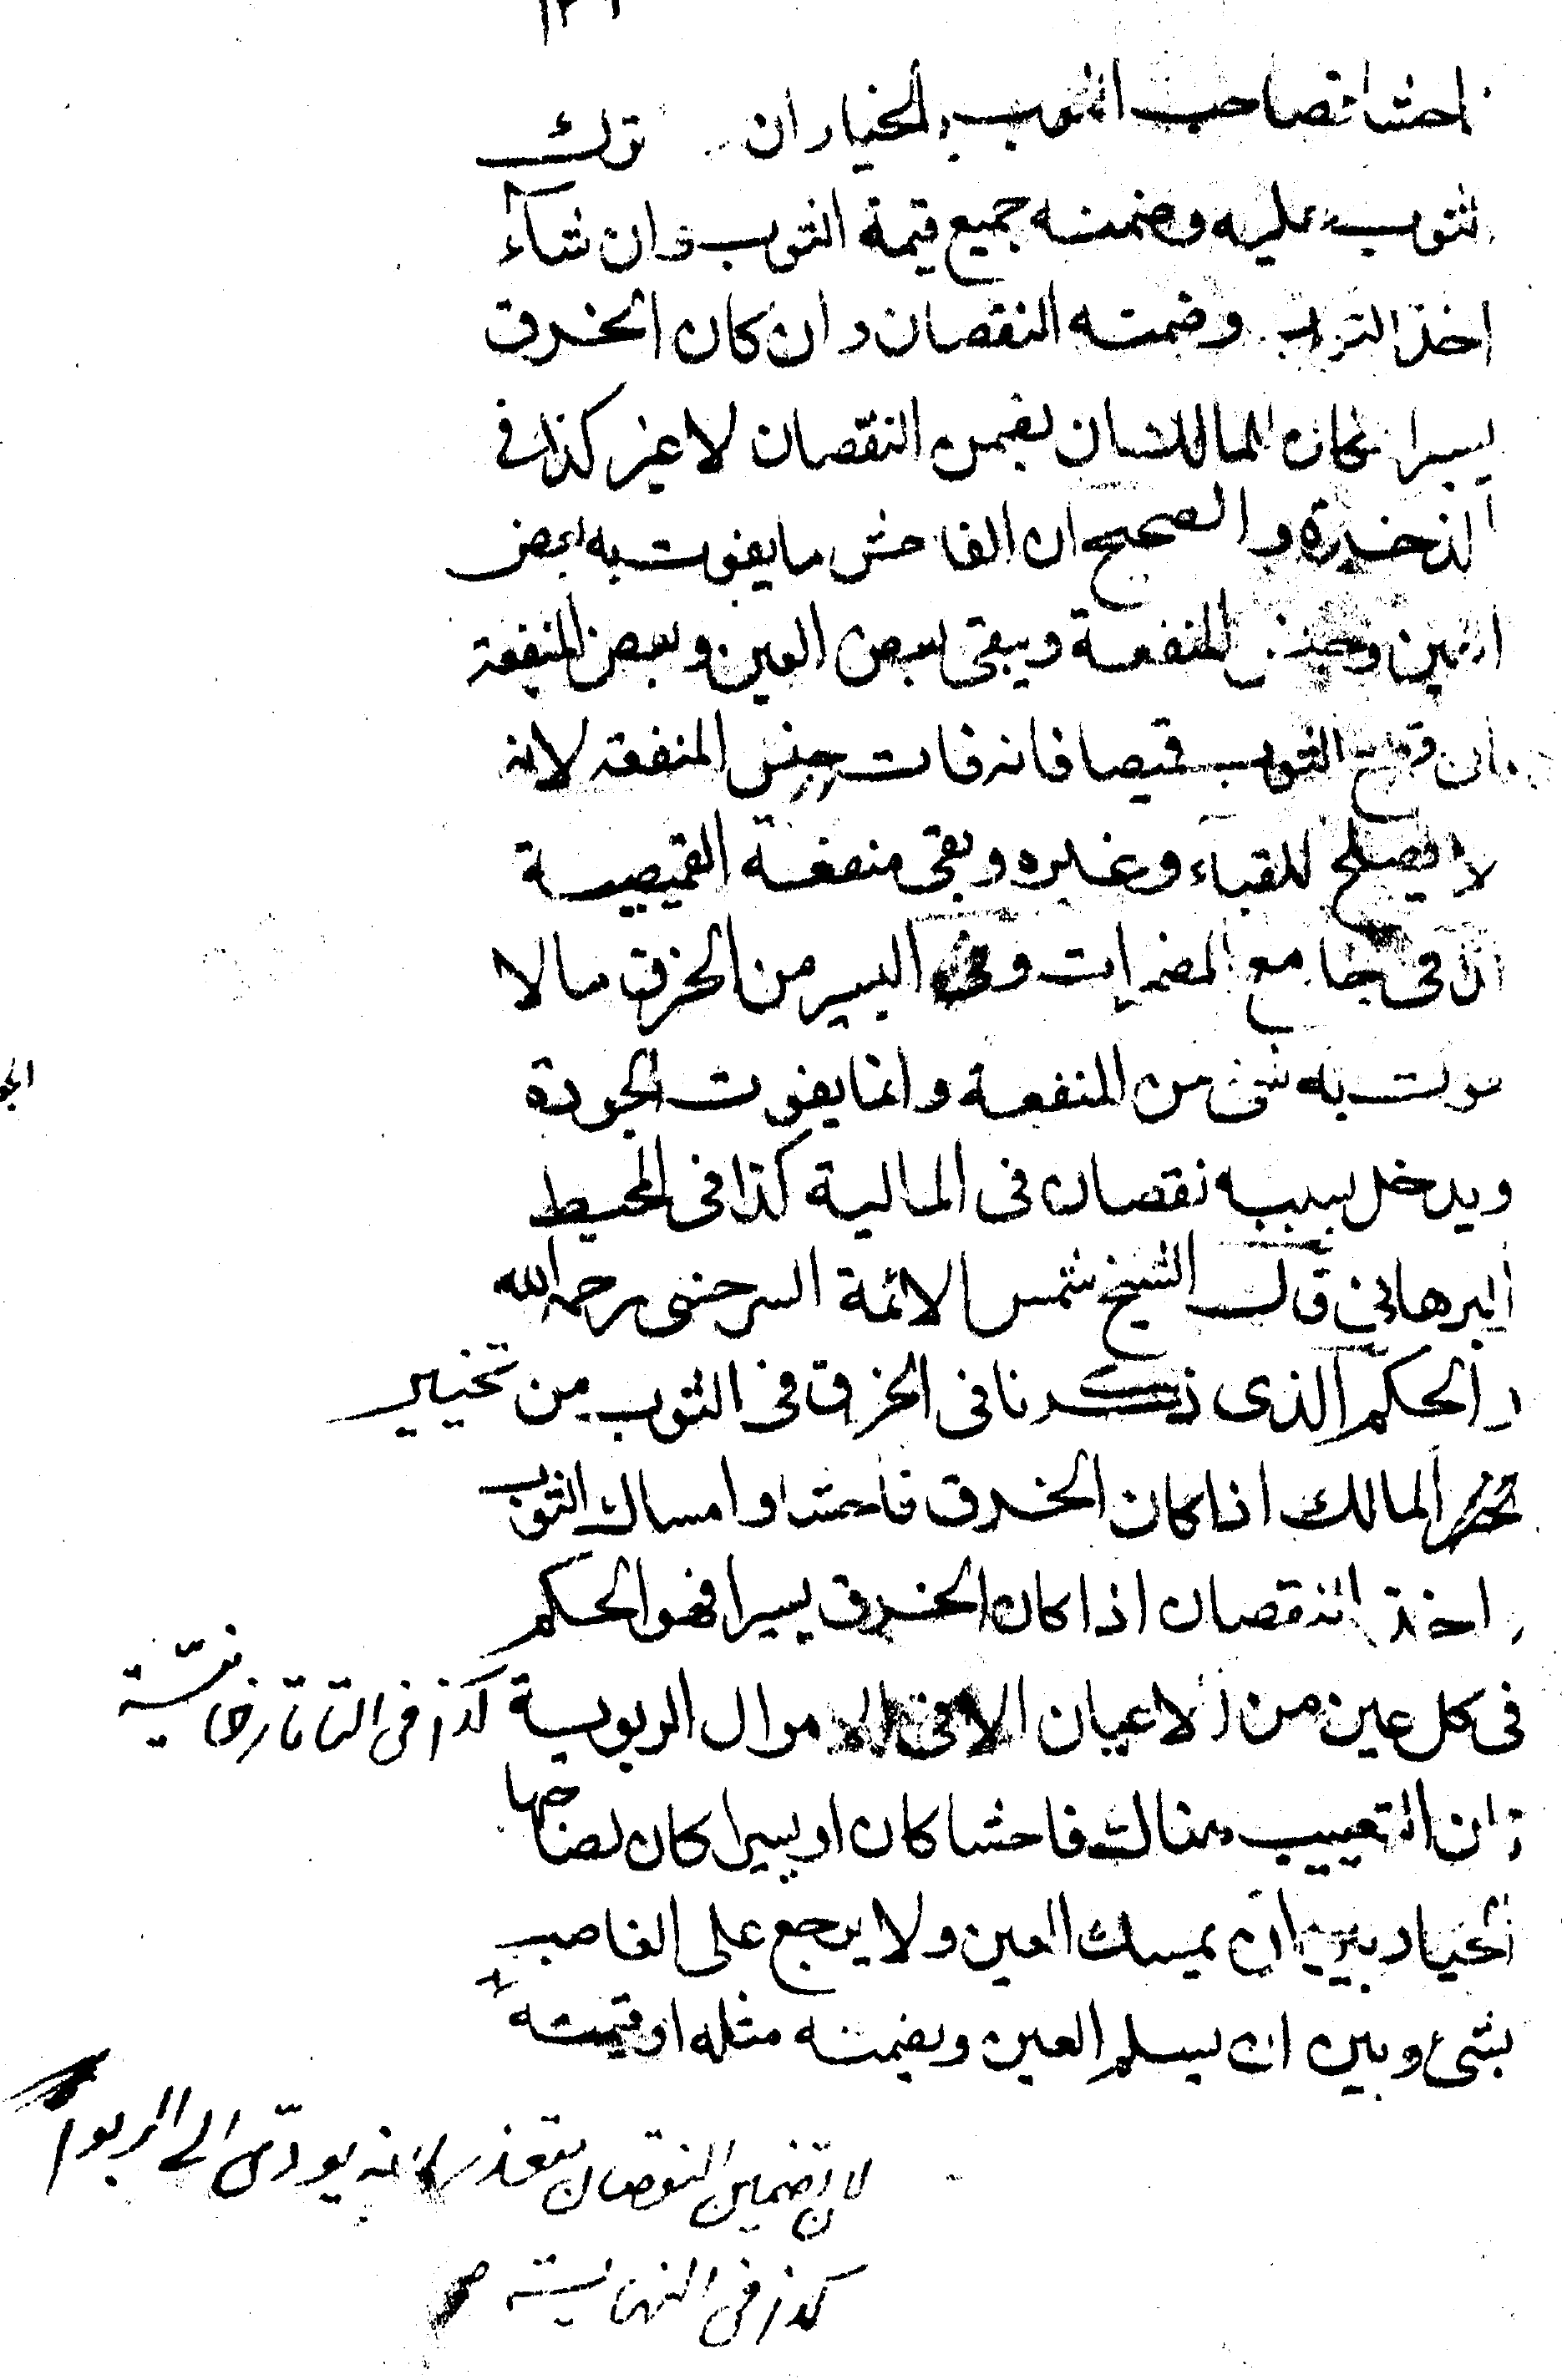 فاحشا فصاحب الثوب بالخيار ان ترك
الثوب عليه وضمنه جميع قيمة الثوب وان شاء
اخذ الثوب وضمنه النقصان وان كان الخرق
يسيرا كان للمالك ان يضمن النقصان لا غير كذا في
الذخيرة والصحيح ان الفاحش ما يفوت به بعض
العين وجنس المنفعة ويبقى بعض العين وبعض المنفعة
بان قطع الثوب قميصا فانه فات جنس المنفعة لانه
لا يصلح للقباء وغيره وبقى منفعة القميصية
في جامع المضمرات وفي اليسير من الخرق ما لا
يفوت به شئ من المنفعة وانما يفوت الجودة
ويدخل بسببه نقصان في المالية كذا في المحيط
البرهاني قال الشيخ شمس الائمة السرخسي رحمه الله
والحكم الذي ذكرنا في الخرق في الثوب من تخيير
المالك اذا كان الخرق فاحشا وامساك الثوب
واخذ النقصان اذا كان الخرق يسيرا فهو الحكم
في كل عين من الاعيان الا في الاموال الربوية كذا في التاتارخانية
فان التعييب هناك فاحشا كان او يسيرا كان لصاحبها
الخيار بين ان يمسك العين ولا يرجع على الغاصب
بشئ وبين ان يسلم العين ويضمنه مثله او قيمته
لان تضمين النقصان متعذر لانه يودي الى الربوا
كذا في النهاية صح